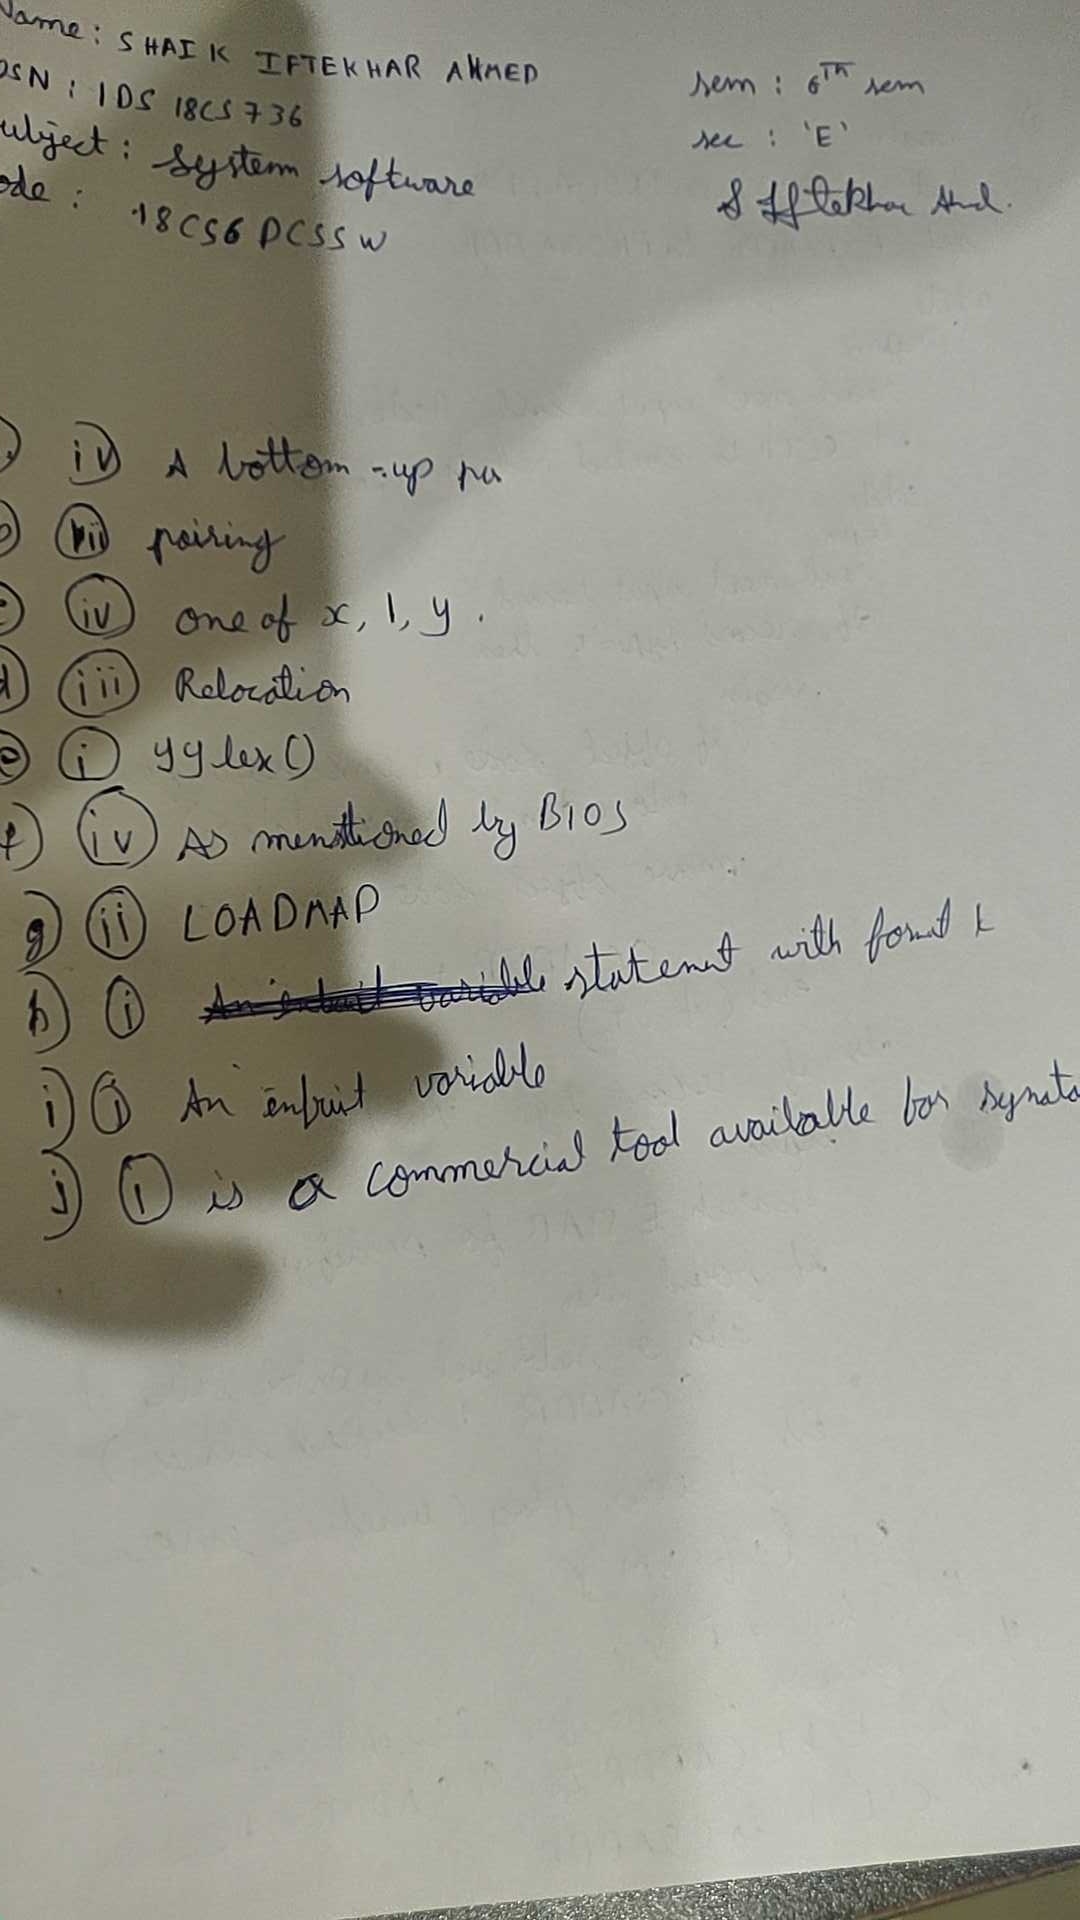 Name: SHAIK IFTEKHAR AHMED
USN: 1DS 18CS736
Subject: System software
Code: 18CS6DCSSW
sem: 6TH sem
sec: 'E'
iv) A bottom-up pa
iii pairing
iv one of x, 1, y.
d) iii Relocation
e) i yylex()
f) iv As menstioned by BIOS
g) ii LOADMAP
h) i statement with format
i) i An variable
j) i is a commercial tool available for